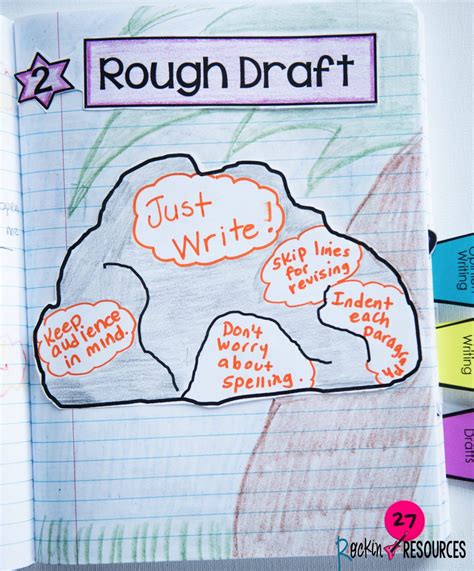 2
Rough Draft
Just
Write!
Skip lines
for
revising
Keep
audience
in mind.
Don't
worry
about
spelling.
Indent
each
paragraph
Writing
Writing
Drafts
27
Rockin RESOURCES